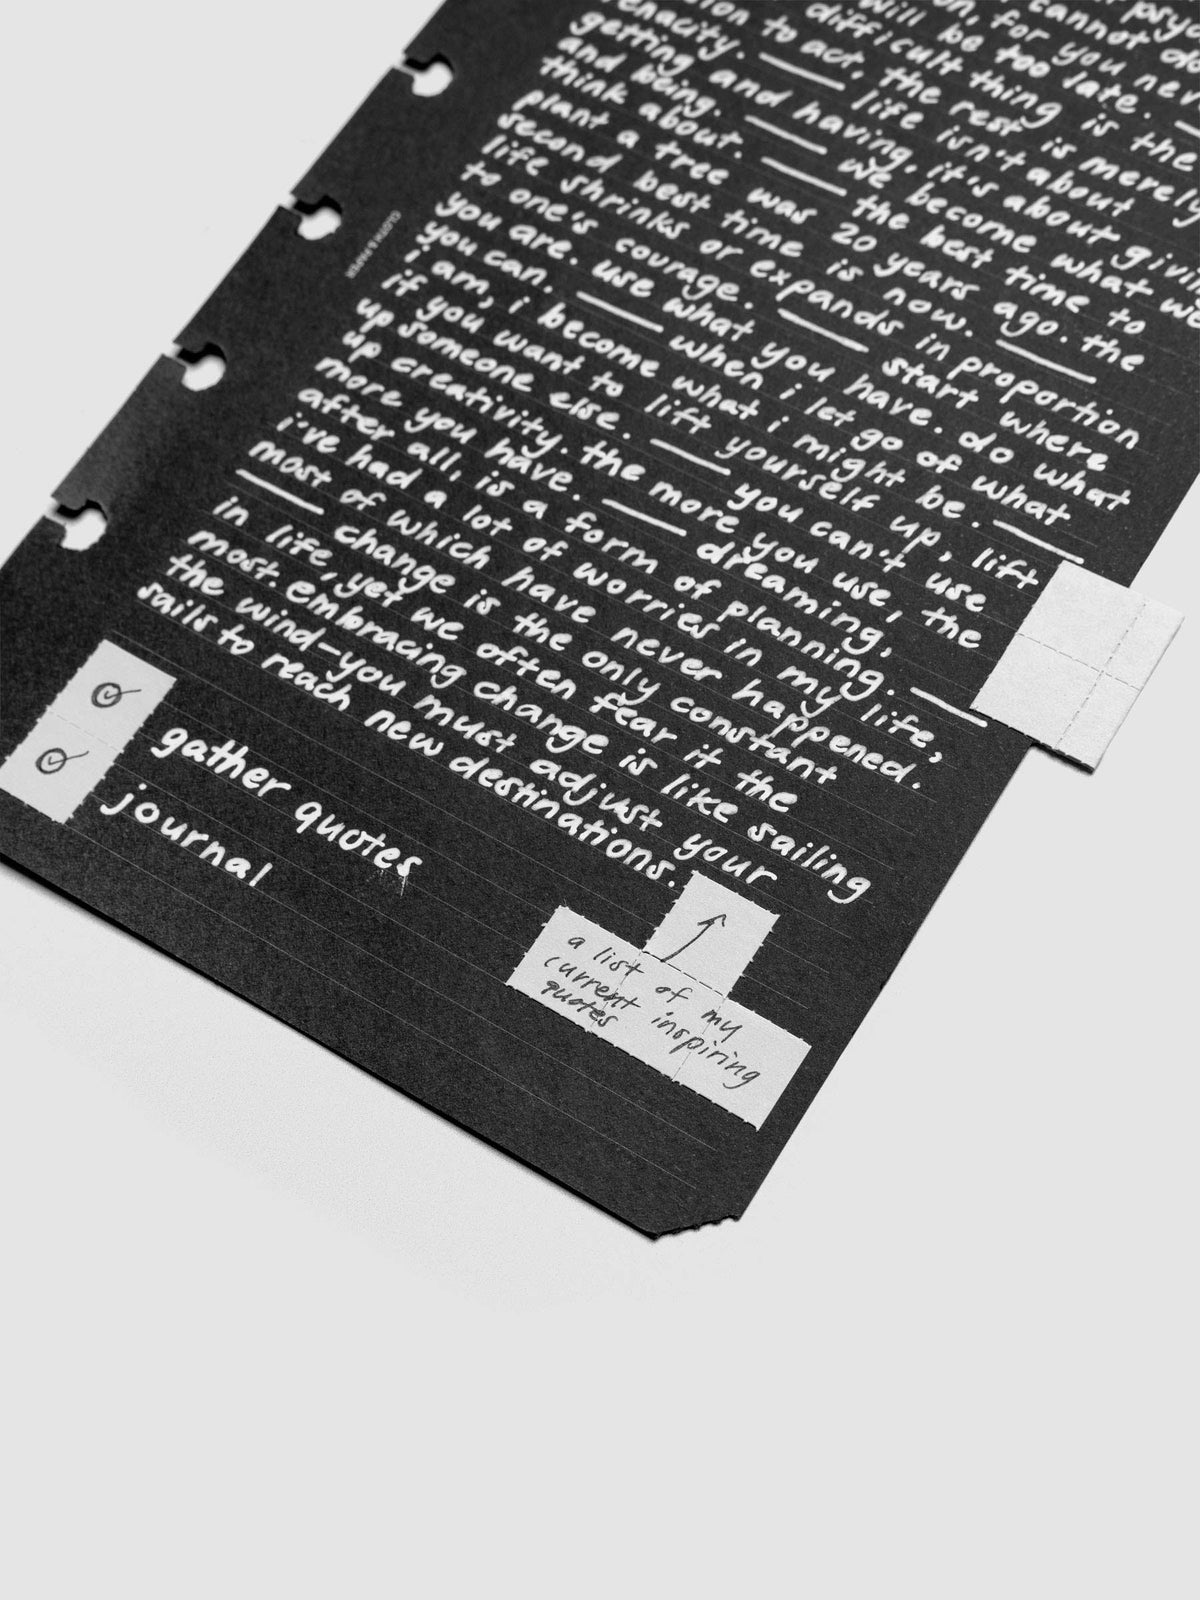 cannot do
for you
will be too late.
difficult thing is the
to act, the rest is merely
tenacity. life isn't about
getting and having, it's about
and being. we become what we
think about. the best time to
plant a tree was 20 years ago. the
second best time is now.
life shrinks or expands in proportion
to one's courage. start where
you are. use what you have. do what
you can. when i let go of what
i am, i become what i might be.
if you want to lift yourself up, lift
up someone else. you can't use
up creativity. the more you use, the
more you have. dreaming,
after all, is a form of planning.
i've had a lot of worries in my life,
most of which have never happened.
change is the only constant
in life, yet we often fear it the
most. embracing change is like sailing
the wind-you must adjust your
sails to reach new destinations.
gather quotes
journal
a list of my
current inspiring
quotes
CLOTH & PAPER